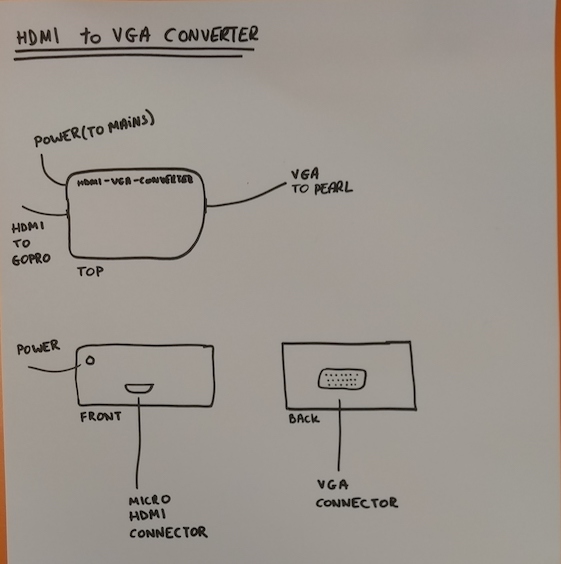 HDMI to VGA CONVERTER
POWER (TO MAiNS)
HDMI-VGA-CONVERTER
VGA
TO PEARL
HDMI
TO
GOPRO
TOP
POWER
FRONT
BACK
MICRO
HDMI
CONNECTOR
VGA
CONNECTOR